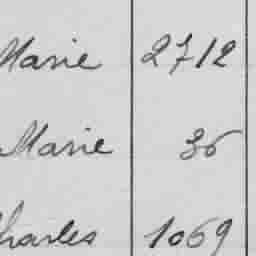 Marie 2712
Marie 36
Charles 1069